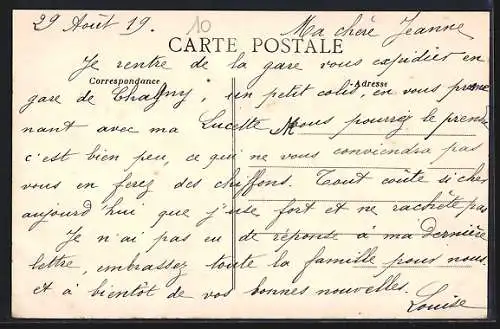 29 Août 19.
10
Ma chère Jeanne
CARTE POSTALE
Je rentre de la gare vous expédier en
Correspondance
Adresse
gare de Chagny, un petit colis, en vous prome
nant avec ma Lucette vous pourrez le prendre
c'est bien peu, ce qui ne vous conviendra pas
vous en ferez des chiffons. Tout coûte si cher
aujourd'hui que j'use fort et ne rachète pas
Je n'ai pas eu de réponse à ma dernière
lettre, embrassez toute la famille pour nous
et à bientôt de vos bonnes nouvelles.
Louise